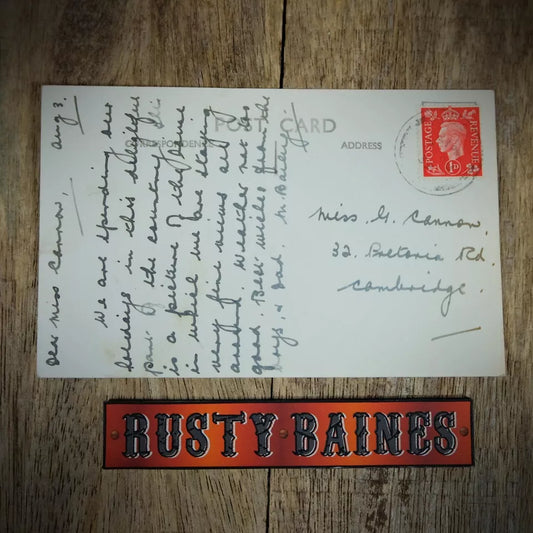 POST CARD
CORRESPONDENCE
ADDRESS
POSTAGE
REVENUE
1D
Dear Miss Cannon, Aug 3.
We are spending our
holidays in this delightful
part of the country. This
is a picture of the house
in which we are staying
very fine views all
around. Weather not too
good. Best wishes from the
boys, & Dad. M. Bailey.
Miss. G. Cannon,
32, Pretoria Rd.
Cambridge.
RUSTY BAINES